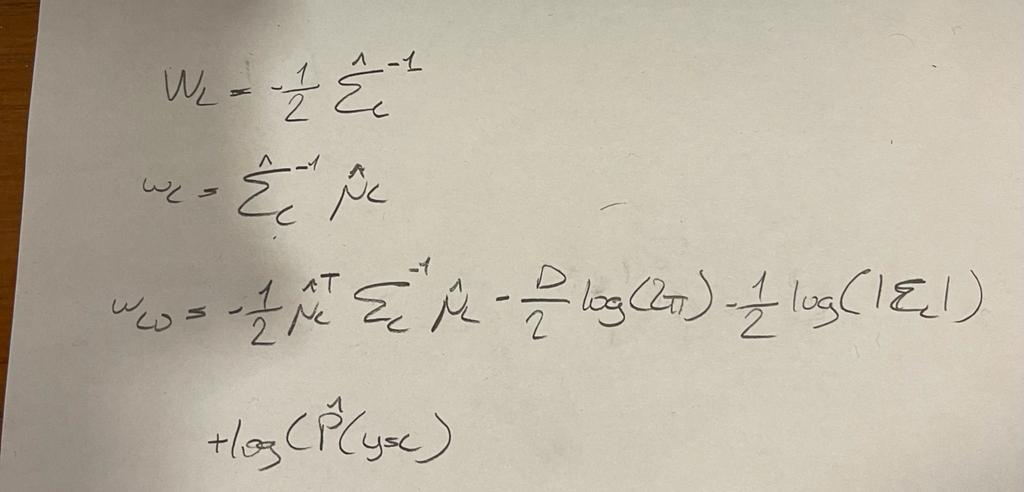 W_c = -1/2 Σ̂_c^-1
w_c = Σ̂_c^-1 μ̂_c
w_c0 = -1/2 μ̂_c^T Σ_c^-1 μ̂_c - D/2 log(2π) - 1/2 log(|Σ_c|)
+log(P̂(y=c)